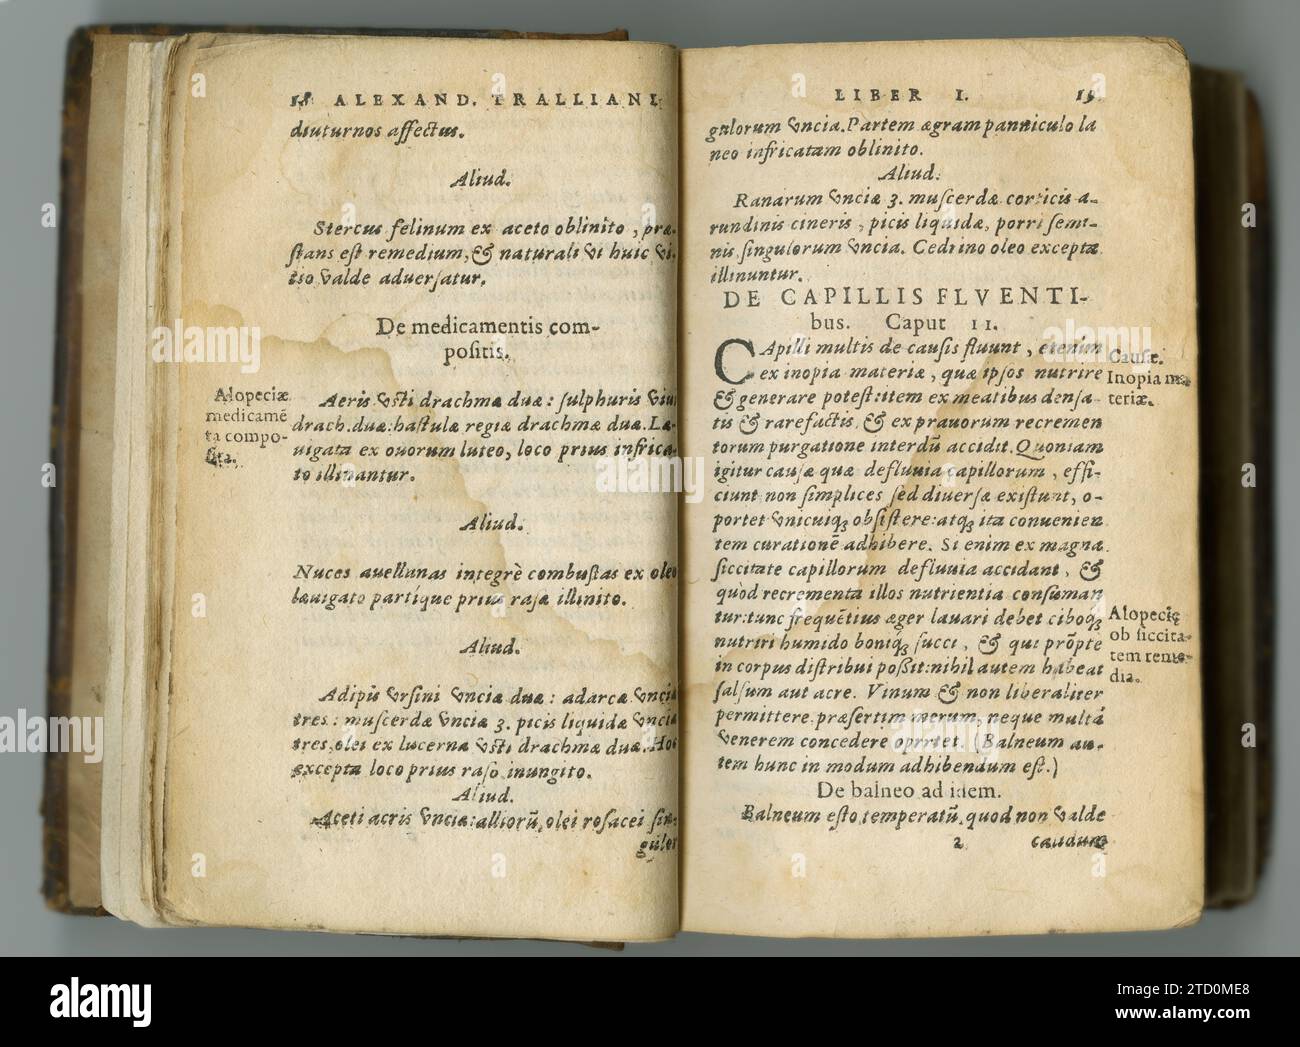 18 ALEXAND. TRALLIANI
diuturnos affectus.
Aliud.
Stercus felinum ex aceto oblinito, præ-
ſtans eſt remedium, & naturali vi huic vi-
tio valde aduerſatur.
De medicamentis com-
poſitis.
Alopeciæ
medicamē
ta compo-
ſita.
Aeris vſti drachmæ duæ: ſulphuris viui
drach. duæ: haſtulæ regiæ drachmæ duæ. Læ-
uigata ex ouorum luteo, loco prius infrica-
to illinantur.
Aliud.
Nuces auellanas integrè combuſtas ex oleo
læuigato partique prius raſæ illinito.
Aliud.
Adipis vrſini vnciæ duæ: adarcæ vnciæ
tres: muſcerdæ vnciæ 3. picis liquidæ vnciæ
tres, olei ex lucerna vſti drachmæ duæ. Hoc
excepta loco prius raſo inungito.
Aliud.
Aceti acris vncia: alliorū, olei roſacei ſin-
gulor
LIBER I. 19.
gulorum vncia. Partem ægram panniculo la
neo infricatam oblinito.
Aliud.
Ranarum vnciæ 3. muſcerdæ corticis a-
rundinis cineris, picis liquidæ, porri ſemi-
nis, ſingulorum vncia. Cedrino oleo exceptæ
illinuntur.
DE CAPILLIS FLVENTI-
bus. Caput II.
CApilli multis de cauſis fluunt, etenim
ex inopia materiæ, quæ ipſos nutrire
& generare poteſt: item ex meatibus denſa-
tis & rarefactis, & ex prauorum recremen
torum purgatione interdū accidit. Quoniam
igitur cauſæ quæ defluuia capillorum, effi-
ciunt non ſimplices ſed diuerſæ exiſtunt, o-
portet vnicuiq; obſiſtere: atq; ita conuenien
tem curationē adhibere. Si enim ex magna
ſiccitate capillorum defluuia accidant, &
quòd recrementa illos nutrientia conſuman
tur: tunc frequētius æger lauari debet ciboq;
nutriri humido boniq; ſucci, & qui prōpte
in corpus diſtribui poſſit: nihil autem habeat
ſalſum aut acre. Vinum & non liberaliter
permittere, præſertim merum, neque multā
venerem concedere oportet. (Balneum au-
tem hunc in modum adhibendum eſt.)
De balneo ad idem.
Balneum eſto temperatū, quod non valde
2 caudum
Cauſæ.
Inopia ma
teriæ.
Alopecię
ob ſiccita-
tem reme-
dia.
alamy
Image ID: 2TD0ME8
www.alamy.com